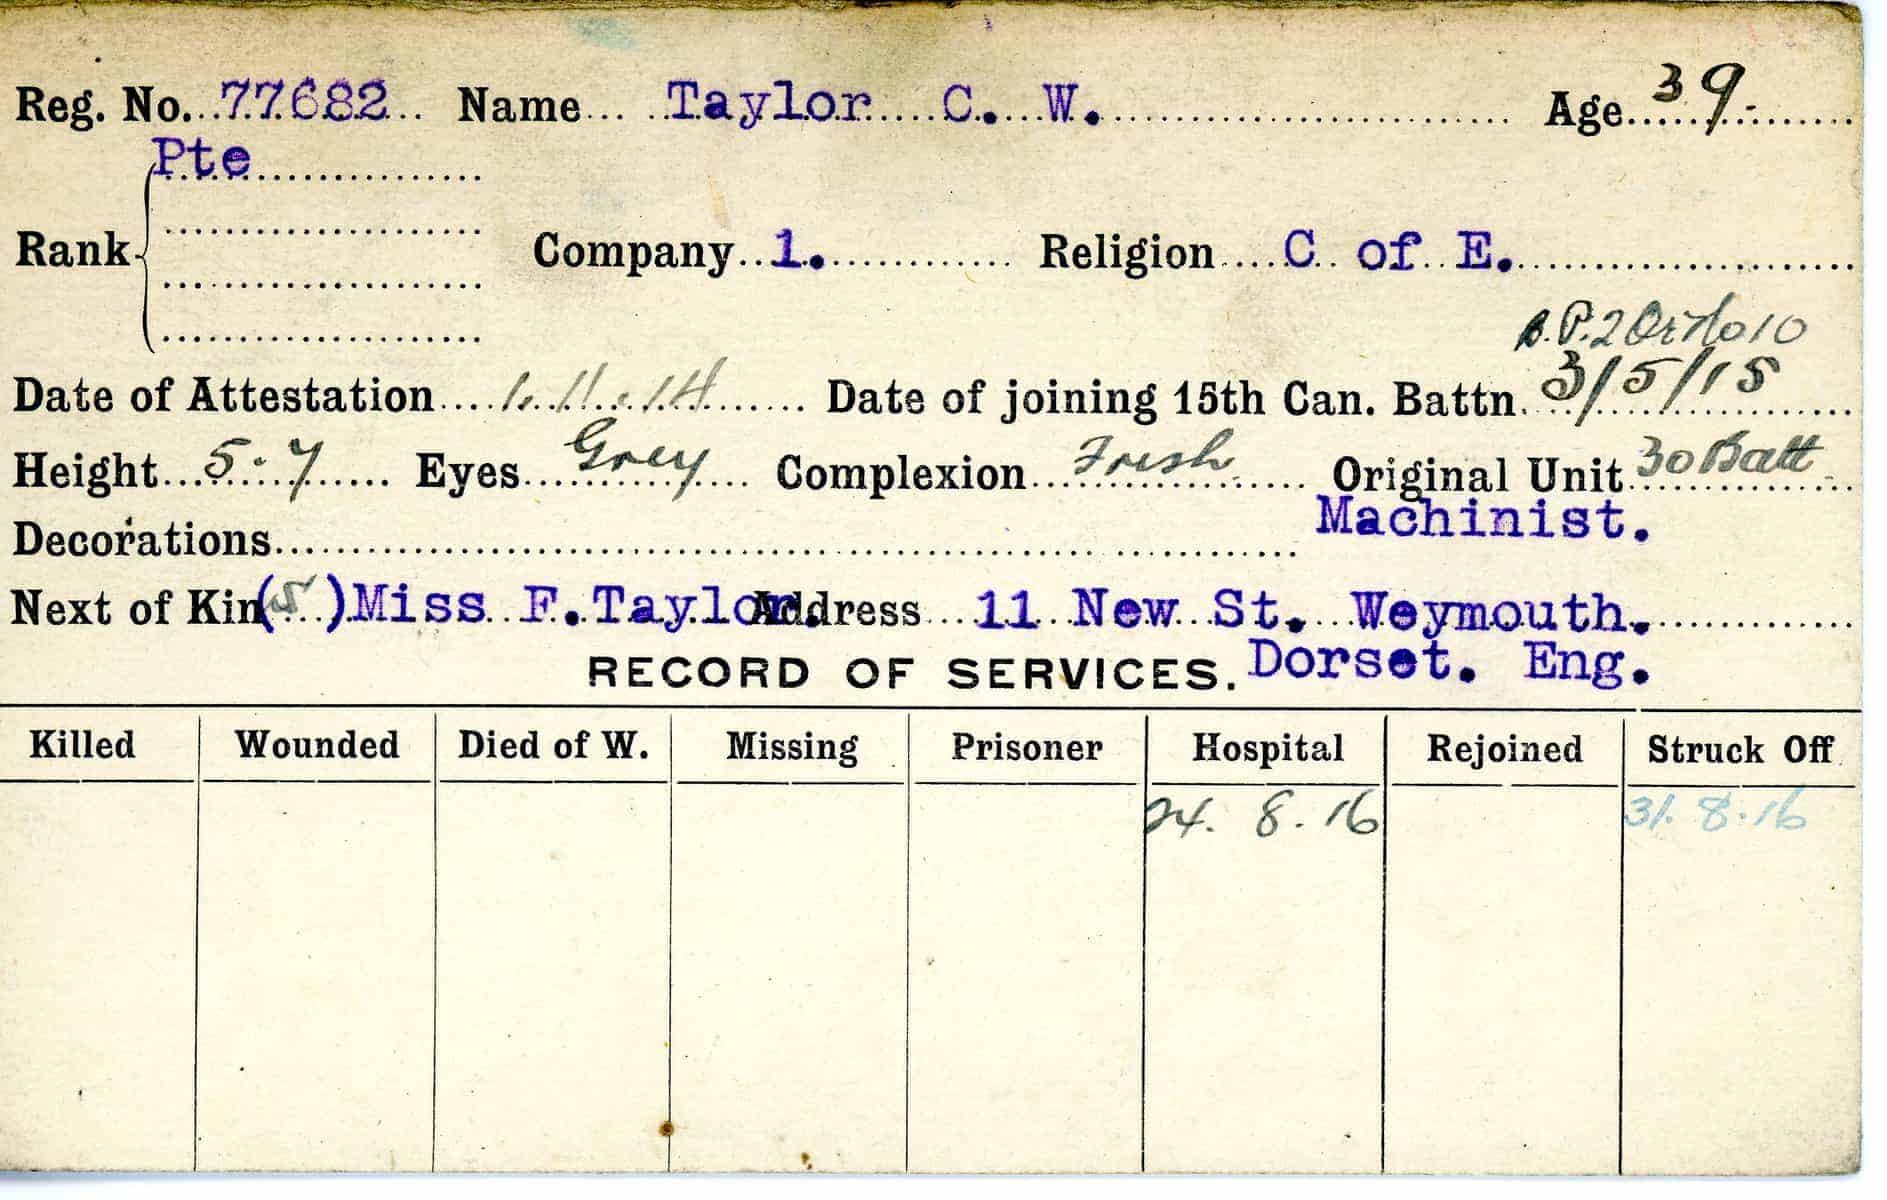 Reg. No. 77682 Name Taylor C. W. Age 39
Pte
Rank Company 1. Religion C of E.
P.2 Or No 10
Date of Attestation 1.11.14 Date of joining 15th Can. Battn. 3/5/15
Height 5.7 Eyes Grey Complexion Fresh Original Unit 30 Batt
Decorations Machinist.
Next of Kin (S) Miss F. Taylor. Address 11 New St. Weymouth.
RECORD OF SERVICES. Dorset. Eng.
Killed Wounded Died of W. Missing Prisoner Hospital Rejoined Struck Off
24. 8. 16 31. 8. 16